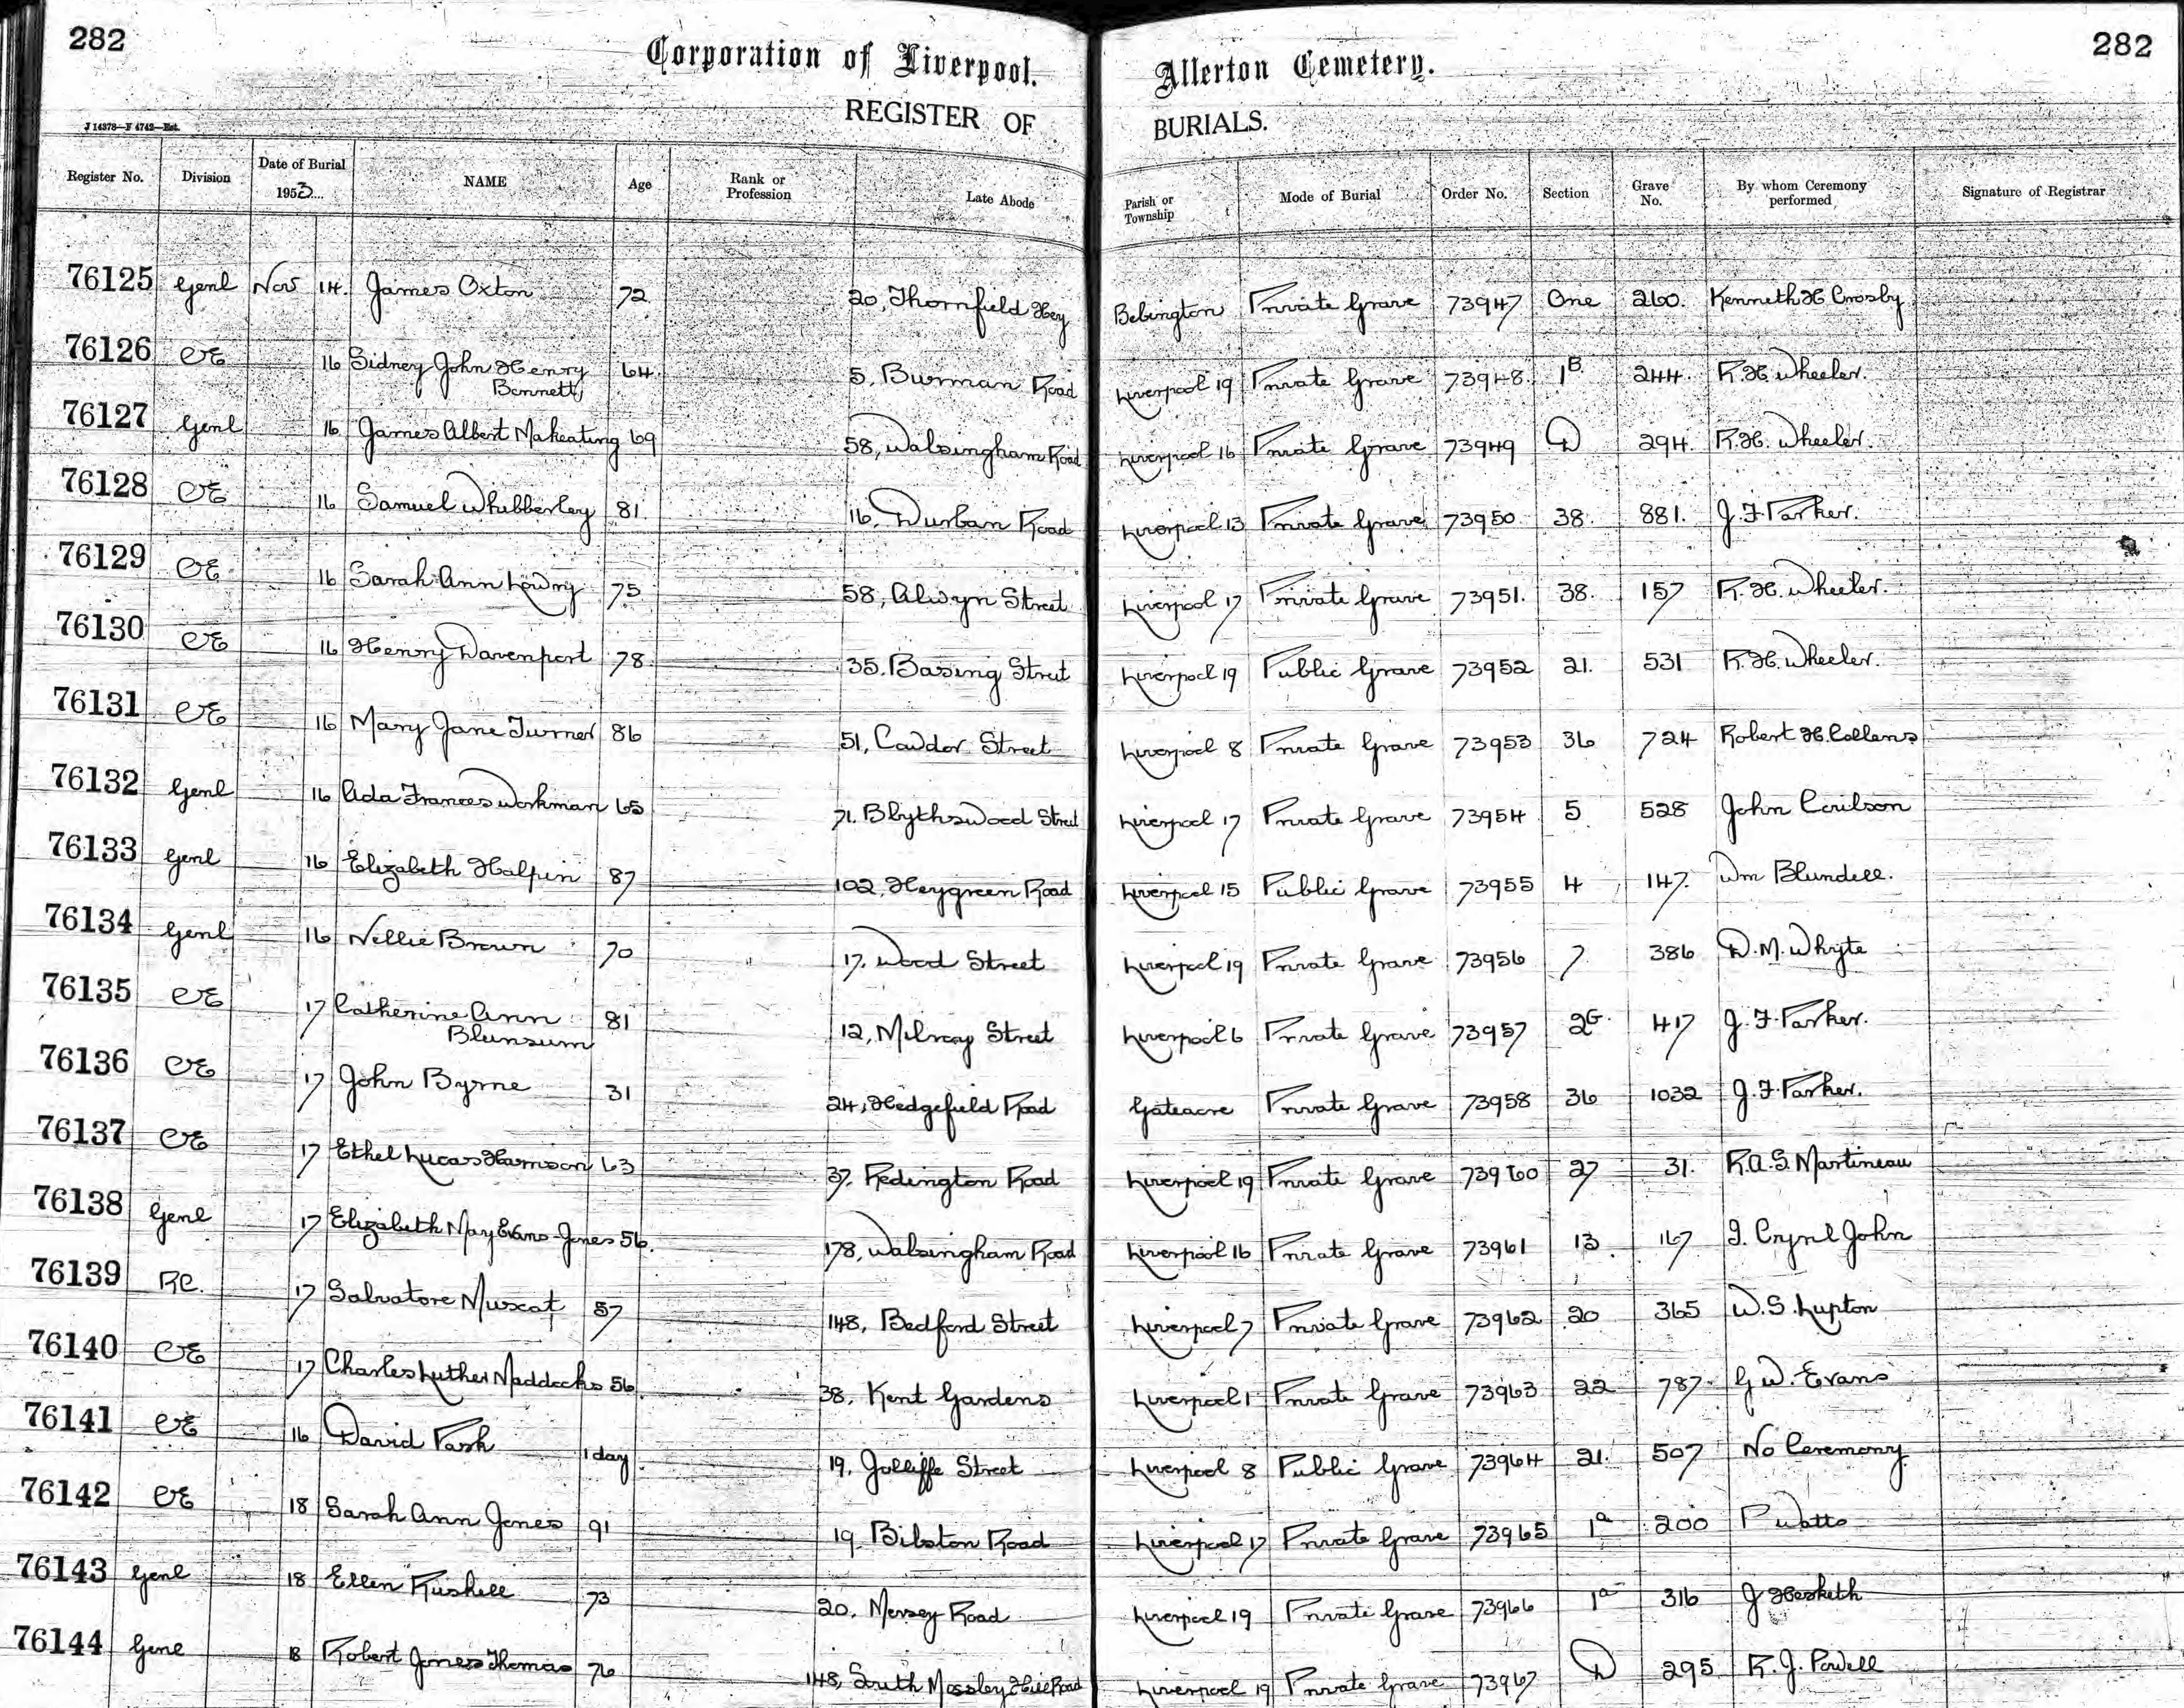 282
282
Corporation of Liverpool. Allerton Cemetery.
REGISTER OF BURIALS.
J 14378—F 4742—Est.
Register No. Division Date of Burial 1953 NAME Age Rank or Profession Late Abode Parish or Township Mode of Burial Order No. Section Grave No. By whom Ceremony performed Signature of Registrar
76125 Genl Nov 14. James Oxton 72 20, Thornfield Hey Bebington Private Grave 73947 One 260. Kenneth H Crosby
76126 CE 16 Sidney John Henry Bennett 64. 5, Burman Road Liverpool 19 Private Grave 73948. 1B. 244. R.H. Wheeler.
76127 Genl 16 James Albert Makeating 69 58, Walsingham Road Liverpool 16 Private Grave 73949 D 294. R.H. Wheeler.
76128 CE 16 Samuel Whibberley 81. 16, Durban Road Liverpool 13 Private Grave 73950. 38. 881. J.F. Parker.
76129 CE 16 Sarah Ann Lowry 75 58, Alwyn Street Liverpool 17 Private Grave 73951. 38. 157 R.H. Wheeler.
76130 CE 16 Henry Davenport 78 35. Basing Street Liverpool 19 Public Grave 73952 21. 531 R.H. Wheeler.
76131 CE 16 Mary Jane Turner 86 51, Cawdor Street Liverpool 8 Private Grave 73953 36 724 Robert H. Collens
76132 Genl 16 Ada Frances Workman 65 71. Blythswood Street Liverpool 17 Private Grave 73954 5 528 John
76133 Genl 16 Elizabeth Halpin 87 102, Heygreen Road Liverpool 15 Public Grave 73955 4 147. Wm Blundell.
76134 Genl 16 Nellie Brown 70 17, Wood Street Liverpool 19 Private Grave 73956 7 386 D.M. Whyte
76135 CE 17 Catherine Ann Blunsum 81 12, Milroy Street Liverpool 6 Private Grave 73957 2G. 417 J.F. Parker.
76136 CE 17 John Byrne 31 24, Hedgefield Road Gateacre Private Grave 73958 36 1032 J.F. Parker.
76137 CE 17 Ethel Lucas Harrison 63 37. Redington Road Liverpool 19 Private Grave 73960 27 31. R.A.S. Martineau
76138 Genl 17 Elizabeth May Evans-Jones 56. 178, Walsingham Road Liverpool 16 Private Grave 73961 13 167 Cyril John
76139 RC. 17 Salvatore Muscat 57 148, Bedford Street Liverpool 7 Private Grave 73962 20 365 W.S. Lupton
76140 CE 17 Charles Luther Maddocks 56. 38. Kent Gardens Liverpool 1 Private Grave 73963 22 787. G.W. Evans
76141 CE 16 David Pash 1 day 19, Jolliffe Street Liverpool 8 Public Grave 73964 21. 507 No Ceremony
76142 CE 18 Sarah Ann Jones 91 19, Bilston Road Liverpool 17 Private Grave 73965 1a 200 P Watts
76143 Genl 18 Ellen Rushell 73 20. Mersey Road Liverpool 19 Private Grave 73966 1a 316 J Hesketh
76144 Genl 18 Robert James Thomas 76 148, South Mossley Hill Road Liverpool 19 Private Grave 73967 D 295 R.J. Powell